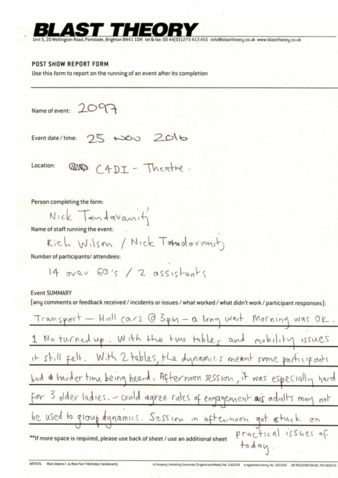 BLAST THEORY
Unit 5, 20 Wellington Road, Portslade, Brighton BN41 1DN tel & fax 00 44(0)1273 413 455 info@blasttheory.co.uk www.blasttheory.co.uk
POST SHOW REPORT FORM
Use this form to report on the running of an event after its completion
Name of event: 2097
Event date / time: 25 NOV 2016
Location: C4DI - Theatre.
Person completing the form:
Nick Tandavanitj
Name of staff running the event:
Rich Wilson / Nick Tandavanitj
Number of participants/ attendees:
14 over 60's / 2 assistants
Event SUMMARY
[any comments or feedback received / incidents or issues / what worked / what didn't work / participant responses]:
Transport - Hull cars @ 3pm - a long wait. Morning was OK.
1 No turned up. With the two tables and mobility issues
it still felt. With 2 tables, the dynamics meant some participants
had a harder time being heard. Afternoon session, it was especially hard
for 3 older ladies. - could agree rules of engagement as adults may not
be used to group dynamics. Session in afternoon got stuck on
practical issues of
**If more space is required, please use back of sheet / use an additional sheet
today.
ARTISTS: Matt Adams F, Ju Row Farr F Nicholas Tandavanitj